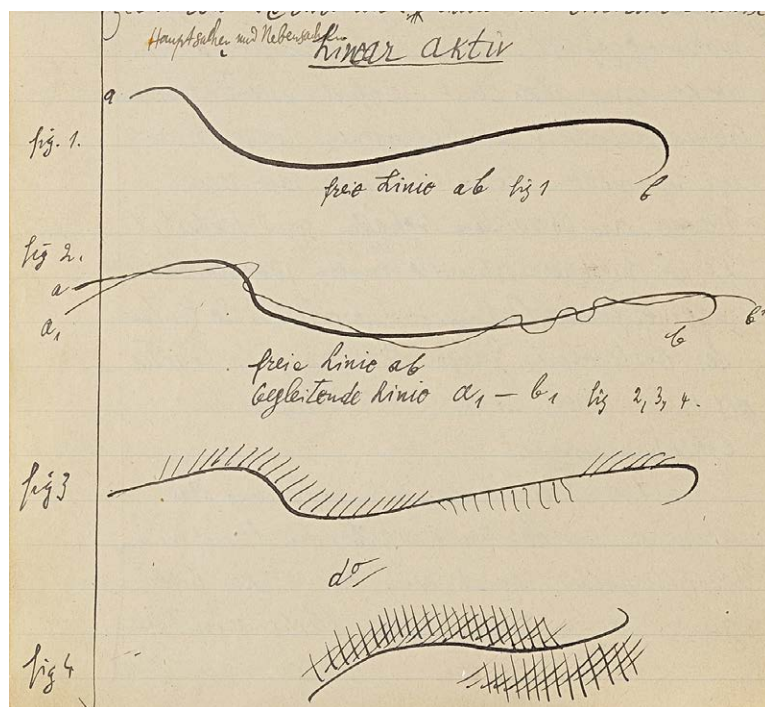 Hauptsachen und Nebensachen
Linear aktiv
a
fig. 1.
freie Linie ab fig 1
b
fig 2.
a
a₁
b
b¹
freie Linie ab
begleitende Linie a₁ – b₁ fig 2, 3, 4.
fig 3
dº
fig 4